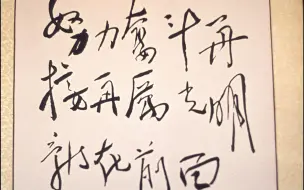 努力奮斗再
接再厲光明
就在前面